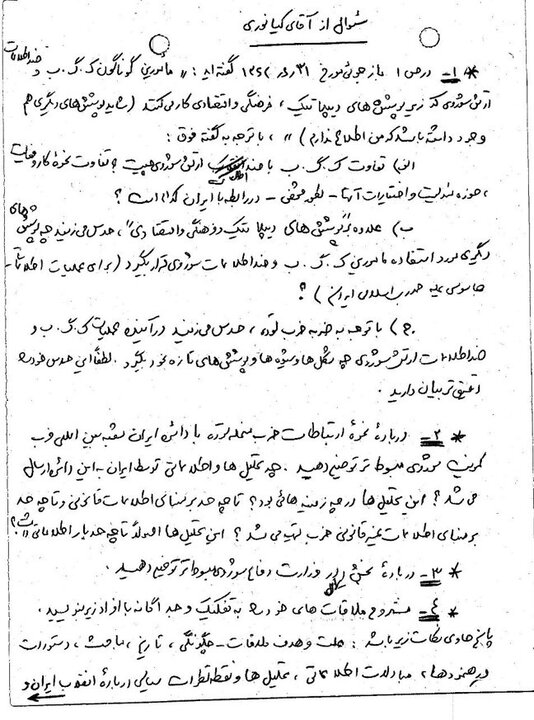 سئوال از آقای کیانوری
* ۱- در ص ۱ بازجوئی مورخ ۳۱ر ر۱۳۶۲ گفته‌اید: «مأمورین گوناگون ک.گ.ب و ضد اطلاعات
ارتش شوروی که زیر پوشش های دیپلماتیک، فرهنگی و اقتصادی کار می‌کنند (شاید پوشش‌های دیگری هم
وجود داشته باشد که من اطلاع ندارم)»، با توجه به گفته فوق:
الف) تفاوت ک.گ.ب با ضد اطلاعات ارتش شوروی چیست و تفاوت نحوهٔ کار و فعالیت
، حوزه مسئولیت و اختیارات آنها - بطور مشخص - در رابطه با ایران کدام است؟
ب) علاوه بر "پوشش های دیپلماتیک و فرهنگی و اقتصادی"، حدس می‌زنید چه پوشش های
دیگری مورد استفاده مأمورین ک.گ.ب و ضد اطلاعات شوروی قرار بگیرد (برای عملیات اطلاعاتی-
جاسوسی علیه جمهوری اسلامی ایران)؟
ج) با توجه به ضربه حزب توده، حدس می‌زنید در آینده عملیات ک.گ.ب و
ضد اطلاعات ارتش شوروی چه شکل‌ها و شیوه‌ها و پوشش‌های تازه بخود بگیرد. لطفاً این حدس خود را
دقیق تر بیان دارید.
* ۲- دربارهٔ نحوهٔ ارتباطات حزب منحله توده با دائره ایران شعبه بین المللی حزب
کمونیست شوروی مبسوط تر توضیح دهید. چه تحلیل ها و اطلاعاتی توسط ایران به این دائره ارسال
می شد؟ این تحلیل ها در چه زمینه هائی بود؟ تا چه حد بر مبنای اطلاعات قانونی و تا چه حد
بر مبنای اطلاعات غیر قانونی حزب تهیه می شد؟ این تحلیل‌ها اصولاً تا چه حد بار اطلاعاتی داشت؟
* ۳- دربارهٔ بخش ایران در وزارت دفاع شوروی مبسوط تر توضیح دهید.
* ۴- مشروح ملاقات های خود را به تفکیک و جداگانه با افراد زیر بنویسید.
پاسخ حاوی نکات زیر باشد: علت و هدف ملاقات - چگونگی، تاریخ، مباحث، دستورات
و رهنمودها، مبادلات اطلاعاتی، تحلیل ها و نقطه نظرات سیاسی دربارهٔ انقلاب ایران و